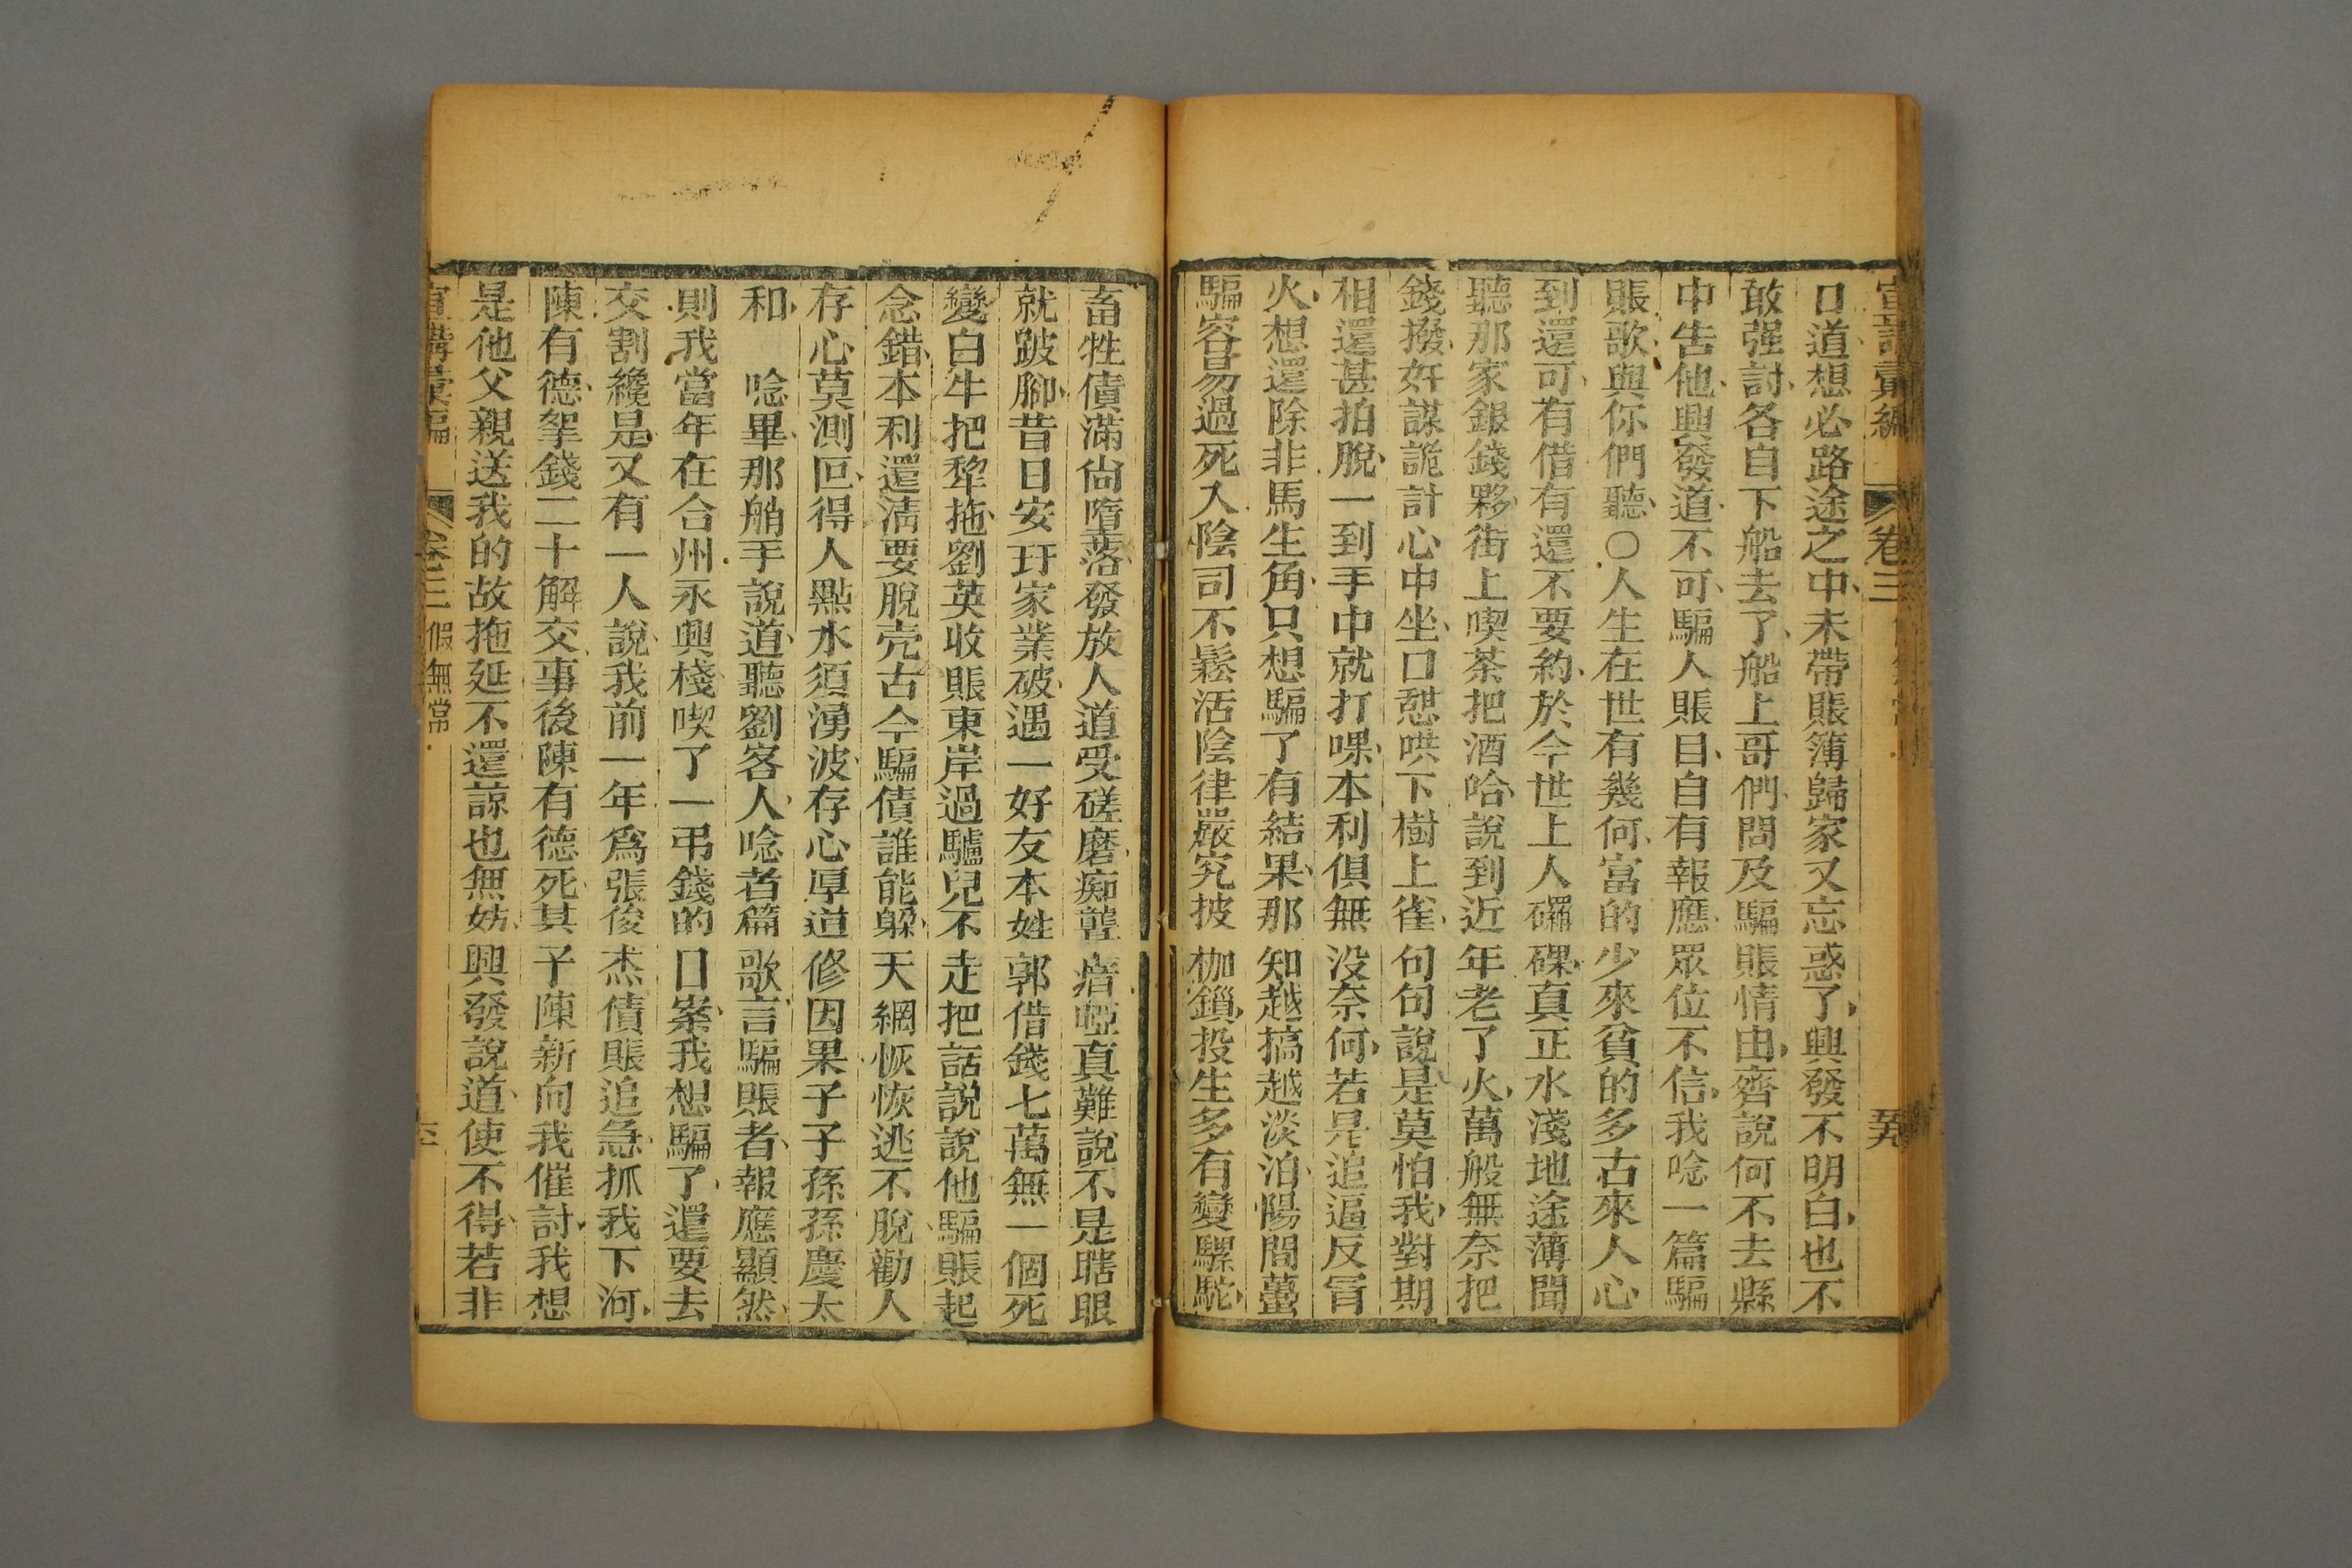 宣講彙編 卷三 五九
口道想必路途之中未帶賬簿歸家又忘惑了興發不明白也不
敢强討各自下船去了船上哥們問及騙賬情由齊說何不去縣
中告他興發道不可騙人賬目自有報應眾位不信我唸一篇騙
賬歌與你們聽○人生在世有幾何富的少來貧的多古來人心
到還可有借有還不要約於今世上人䃺磥真正水淺地途薄聞
聽那家銀錢夥街上喫茶把酒哈說到近年老了火萬般無奈把
錢撥奸謀詭計心中坐口憇哄下樹上雀句句說是莫怕我對期
相還甚拍脫一到手中就打喋本利俱無没奈何若是追逼反冐
火想還除非馬生角只想騙了有結果那知越搞越淡泊陽間蕫
騙容易過死入陰司不鬆活陰律嚴究披枷鎖投生多有變騾駝
畜牲債滿尙墮落發放人道受磋磨痴聾瘖啞真難說不是瞎眼
就跛腳昔日安玗家業破遇一好友本姓郭借錢七萬無一個死
變白牛把犂拖劉英收賬東岸過驢兒不走把話說說他騙賬起
念錯本利還淸要脫壳古今騙債誰能躲天網恢恢逃不脫勸人
存心莫測叵得人點水須湧波存心厚道修因果子子孫孫慶太
和 唸畢那艄手說道聽劉客人唸者篇歌言騙賬者報應顯然
則我當年在合州永興棧喫了一弔錢的口案我想騙了還要去
交割纔是又有一人說我前一年爲張俊杰債賬追急抓我下河
陳有德拏錢二十解交事後陳有德死其子陳新向我催討我想
是他父親送我的故拖延不還諒也無妨興發說道使不得若非
宣講彙編 卷三 假無常 六一